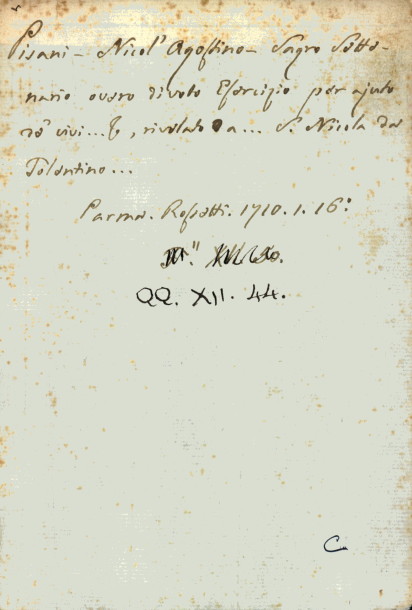 Pisani - Nicol' Agostino - Sagro Sette-
nario overo divoto Esercizio per ajuto
de' vivi... &, rivelato da... S. Nicola da
Tolentino...
Parma. Rossetti. 1710. 1. 16:
QQ. XII. 44.
C